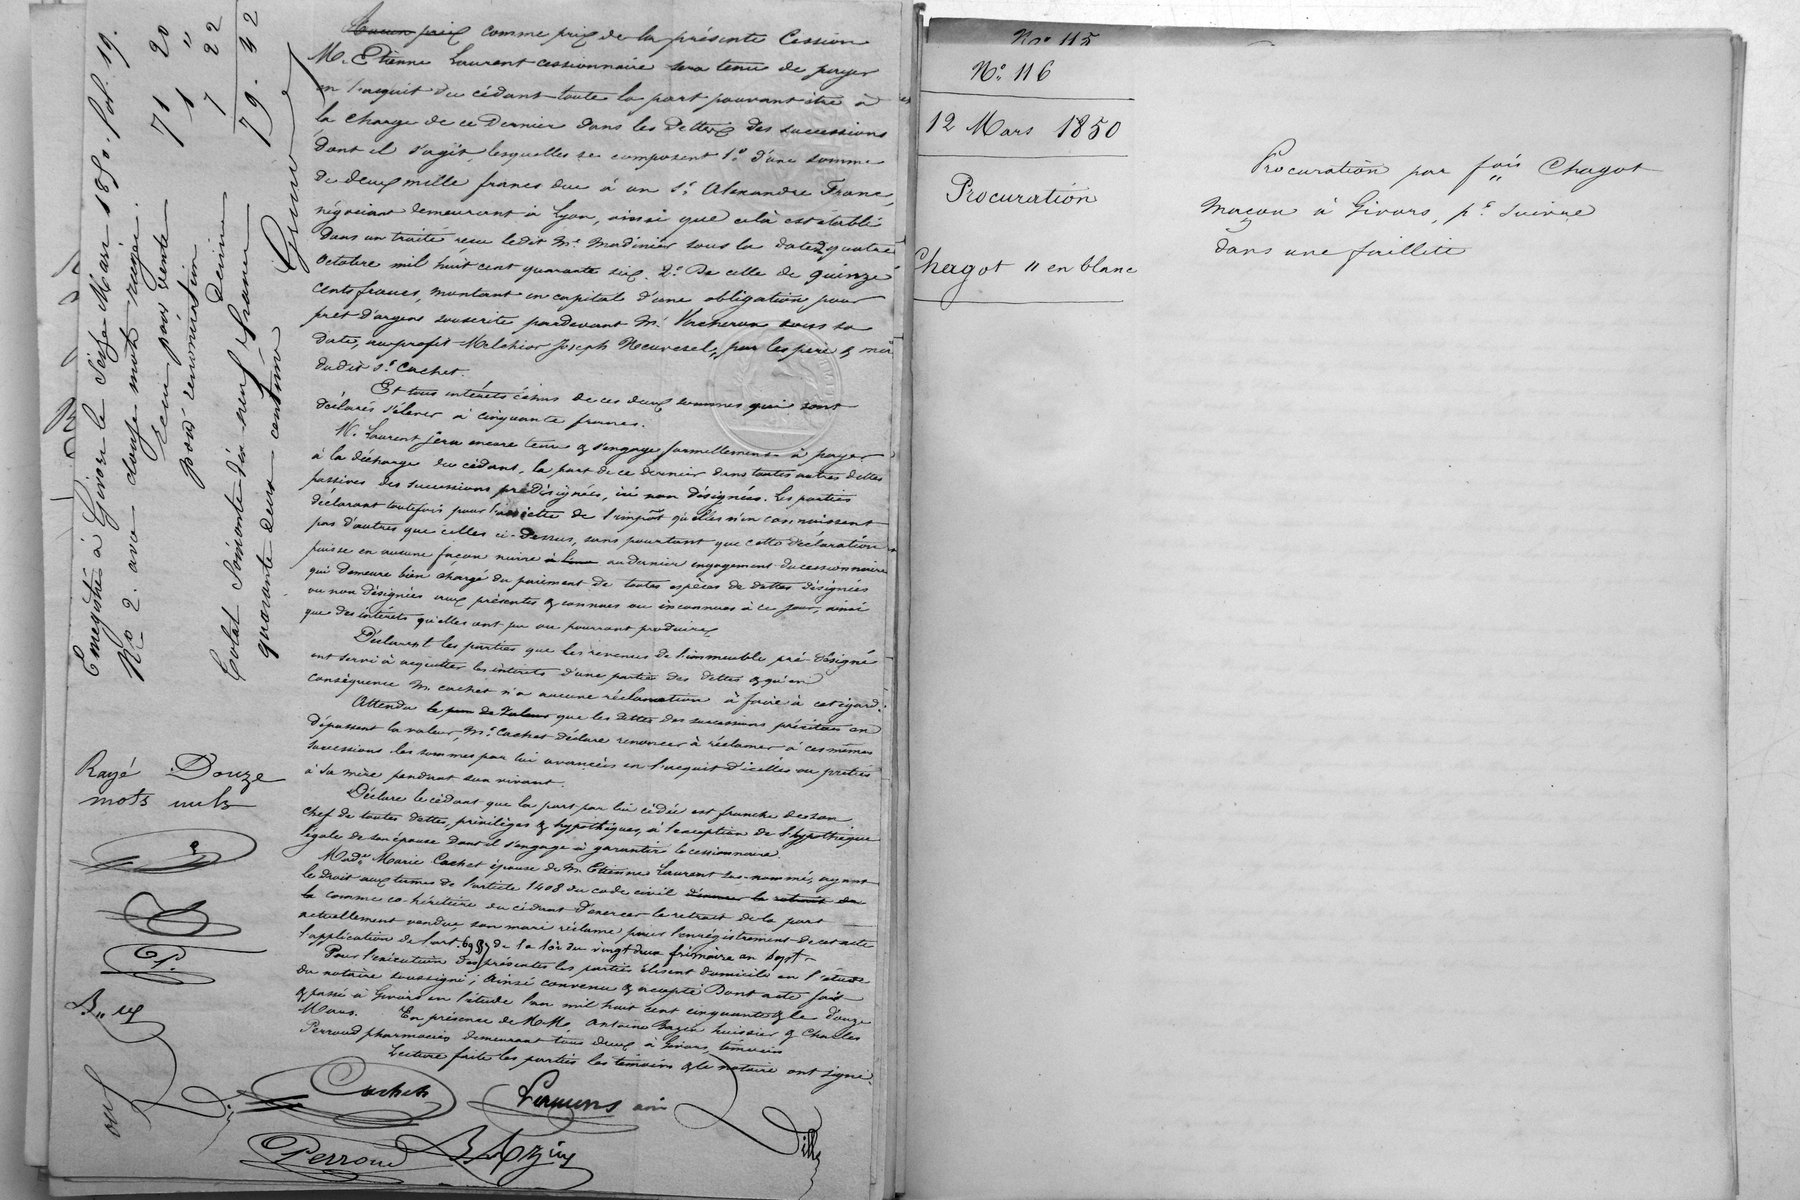 Aucun prix comme prix de la présente Cession
M. Etienne Laurent cessionnaire sera tenu de payer
en l'acquit du cédant toute la part pouvant être à
la charge de ce Dernier dans les Dettes des successions
dont il s'agit, lesquelles se composent 1.º d'une somme
de deux mille francs due à un S.r Alexandre Franc,
négociant demeurant à Lyon, ainsi que cela est établi
Dans un traité reçu ledit M.e Mardinier sous la date quatre
octobre mil huit cent quarante six. 2.º De celle de quinze
cents francs, montant en capital d'une obligation pour
prêt d'argent souscrite pardevant M.e Vacheron sous sa
date, au profit Melchior Joseph Neuvesel, par les père & mère
dudit S.r Cachet.
Et tous intérêts échus de ces deux sommes qui sont
déclarés s'élever à cinquante francs.
M. Laurent sera encore tenu & s'engage formellement à payer
à la décharge du cédant, la part de ce dernier dans toutes autres dettes
passives des successions prédésignées, ici non désignées. Les parties
déclarant toutefois pour l'assiette de l'impôt qu'elles n'en connaissent
pas d'autres que celles ci-dessus, sans pourtant que cette déclaration
puisse en aucune façon nuire au dernier engagement du cessionnaire
qui demeure bien chargé du paiement de toutes espèces de dettes désignées
ou non désignées aux présentes & connues ou inconnues à ce jour, ainsi
que des intérêts qu'elles ont pu ou pourront produire
Déclarent les parties que les revenus de l'immeuble pré-désigné
ont servi à acquitter les intérêts d'une partie des dettes & qu'en
conséquence M. Cachet n'a aucune réclamation à faire à cet égard.
Attendu le peu de valeur que les dettes des successions précitées en
dépassent la valeur, M.r Cachet déclare renoncer à réclamer à ces mêmes
successions les sommes par lui avancées en l'acquit d'icelles ou prêtées
à sa mère pendant son vivant.
Déclare le cédant que la part par lui cédée est franche de son
chef de toutes dettes, privilèges & hypothèques, à l'exception de l'hypothèque
légale de son épouse dont il s'engage à garantir le cessionnaire.
Mad.e Marie Cachet épouse de M. Etienne Laurent sus-nommé, ayant
le droit aux termes de l'article 1408 du code civil
la comme co-héritière du cédant d'exercer le retrait de la part
actuellement vendue, son mari réclame pour l'enregistrement de cet acte
l'application de l'art. 69 § 7 de la loi du vingt deux frimaire an sept.
Pour l'exécution des présentes les parties élisent domicile en l'étude
du notaire soussigné; Ainsi convenu & accepté Dont acte fait
& passé à Givors en l'étude l'an mil huit cent cinquante & le douze
Mars. En présence de MM. Antoine Bazin huissier & Charles
Perroud pharmacien demeurant tous deux à Givors, témoins
Lecture faite les parties les témoins & le notaire ont signé.
Cachet Laurens
Perroud BAzin
Enregistré à Givors le Seize Mars 1850. Fol. 19.
Nº 2. avec douze mots rayés.
Reçu pour vente 71 20
pour renonciation 1 "
Décime 7 22
Total Soixante dix neuf francs 79. 42
quarante deux centimes
Rayé Douze
mots nuls
Nº 115
N.º 116
12 Mars 1850
Procuration
Chagot " en blanc
Procuration par f.ois Chagot
maçon à Givors, p.r suivre
dans une faillite